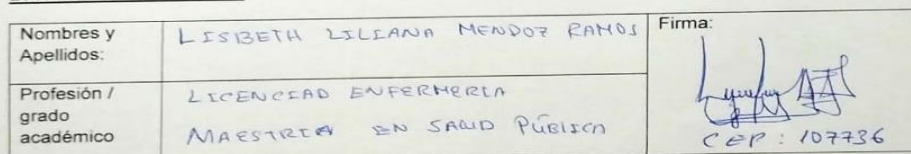 Nombres y Apellidos:
LISBETH LILIANA MENDOZ RAMOS
Firma:
Profesión / grado académico
LICENCIAD ENFERMERIA
MAESTRIA EN SALUD PÚBLICA
CEP: 107736